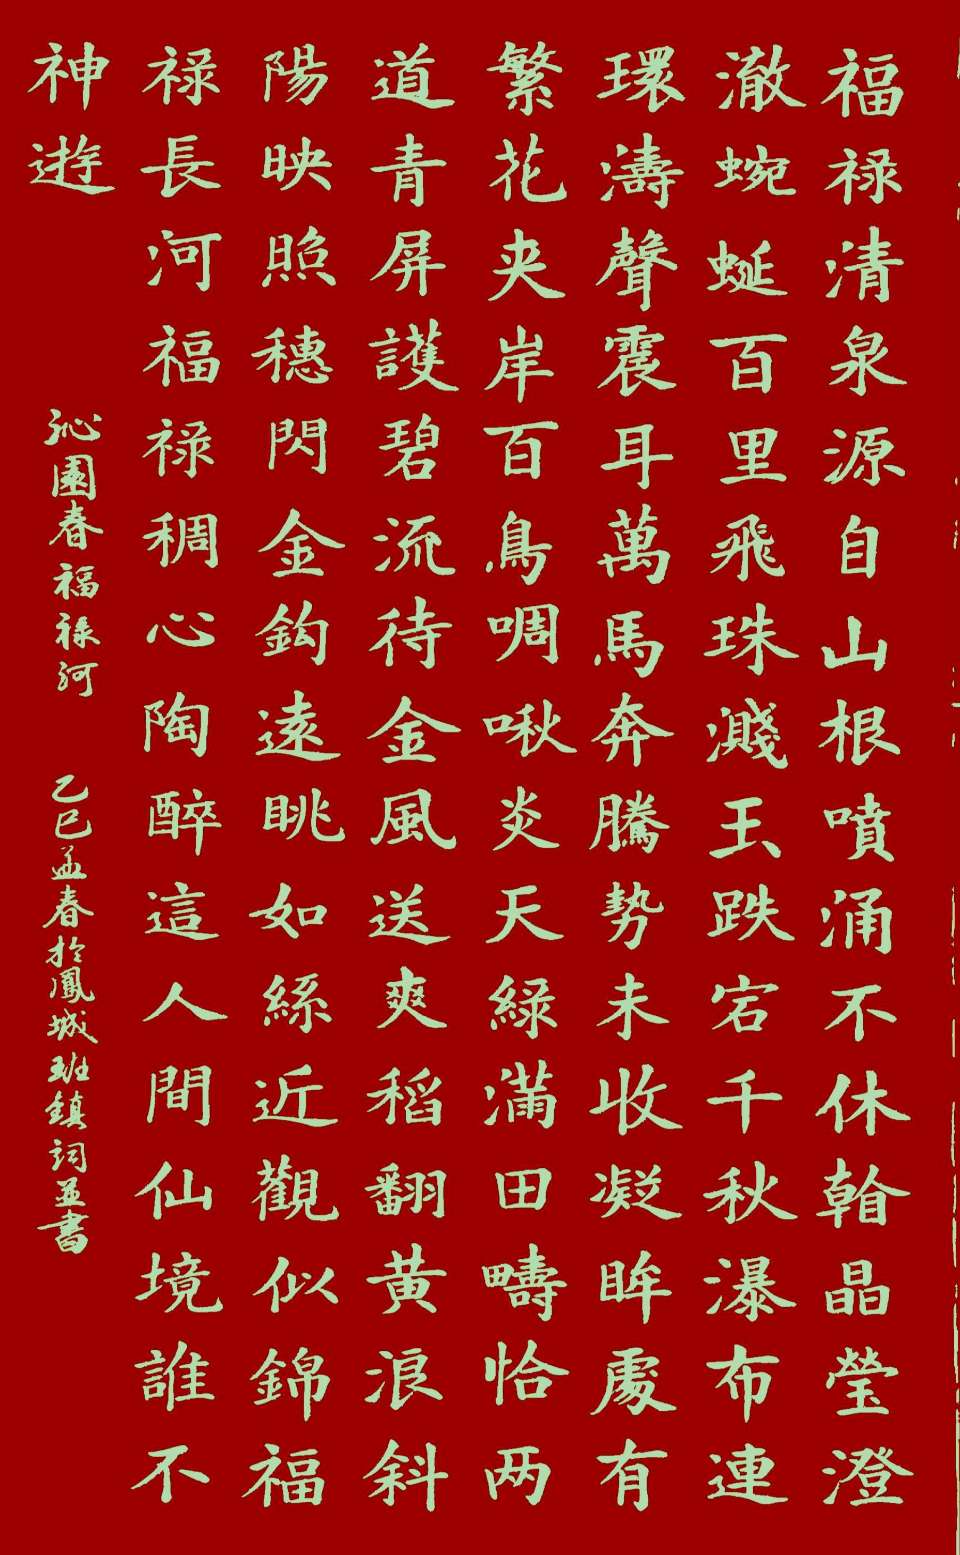 福禄清泉源自山根噴涌不休翰晶瑩澄
澈蜿蜒百里飛珠濺玉跌宕千秋瀑布連
環濤聲震耳萬馬奔騰勢未收凝眸處有
繁花夾岸百鳥啁啾炎天緑滿田疇恰两
道青屏護碧流待金風送爽稻翻黄浪斜
陽映照穗閃金鈎遠眺如絲近觀似錦福
禄長河福禄稠心陶醉這人間仙境誰不
神遊
沁園春福禄河 乙巳孟春於鳳城班鎮詞並書